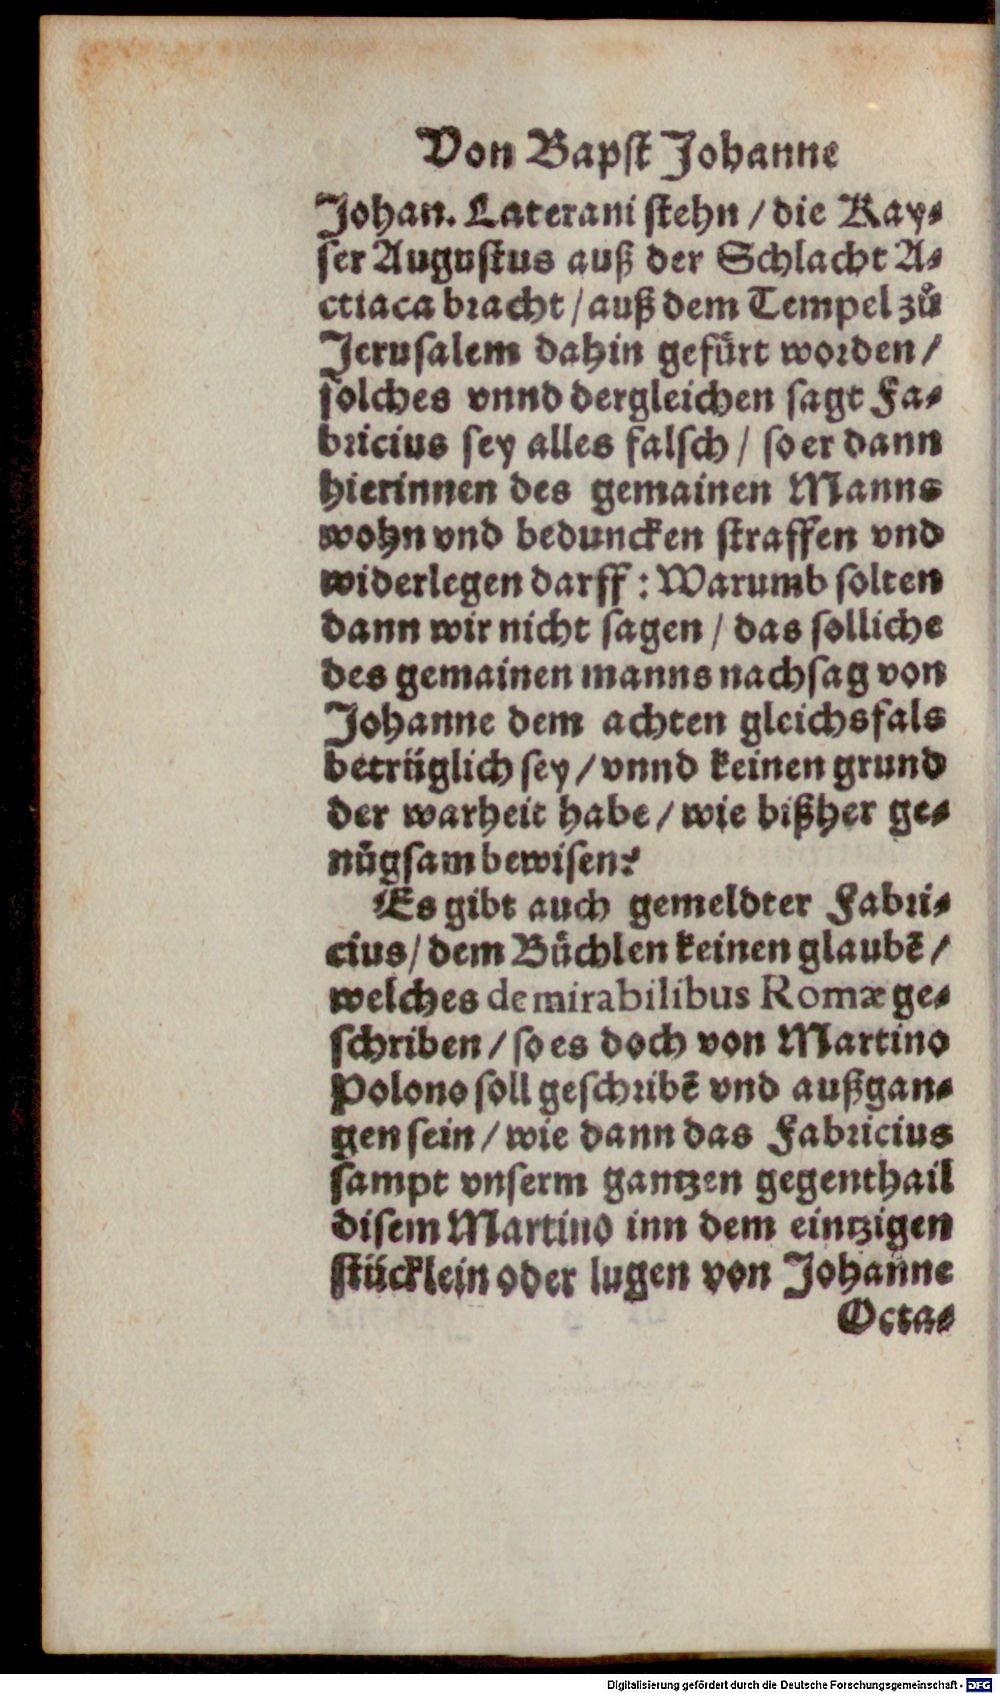 Von Bapſt Johanne
Johan. Laterani ſtehn / die Kay-
ſer Auguſtus auß der Schlacht A-
ctiaca bracht / auß dem Tempel zů
Jeruſalem dahin gefürt worden /
ſolches vnnd dergleichen ſagt Fa-
bricius ſey alles falſch / ſo er dann
hierinnen des gemainen Manns
wohn vnd beduncken ſtraffen vnd
widerlegen darff : Warumb ſolten
dann wir nicht ſagen / das ſolliche
des gemainen manns nachſag von
Johanne dem achten gleichsfals
betrüglich ſey / vnnd keinen grund
der warheit habe / wie bißher ge-
nůgſam bewiſen?
Es gibt auch gemeldter Fabri-
cius / dem Büchlen keinen glaubẽ /
welches de mirabilibus Romæ ge-
ſchriben / ſo es doch von Martino
Polono ſoll geſchribẽ vnd außgan-
gen ſein / wie dann das Fabricius
ſampt vnſerm gantzen gegenthail
diſem Martino inn dem eintzigen
ſtücklein oder lugen von Johanne
Octa-
Digitalisierung gefördert durch die Deutsche Forschungsgemeinschaft - DFG